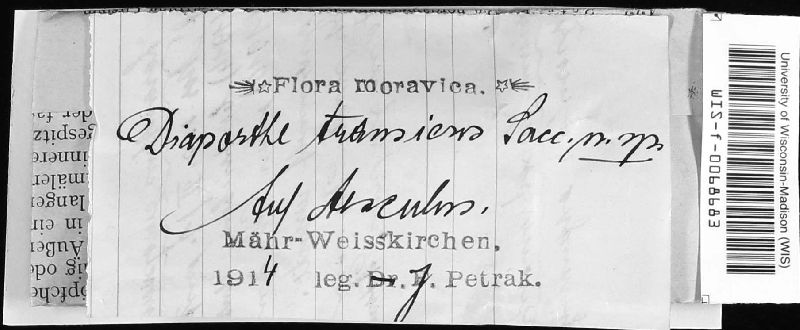 Flora moravica.
Diaporthe transiens Sacc. n. sp.
Auf Aesculus.
Mähr-Weisskirchen.
1914 leg. Dr. J. Petrak.
University of Wisconsin-Madison (WIS)
WIS-f-0068683
der fa
gespitz
innere
mäler
langer
in ein
Äußer
ig ode
öpfche